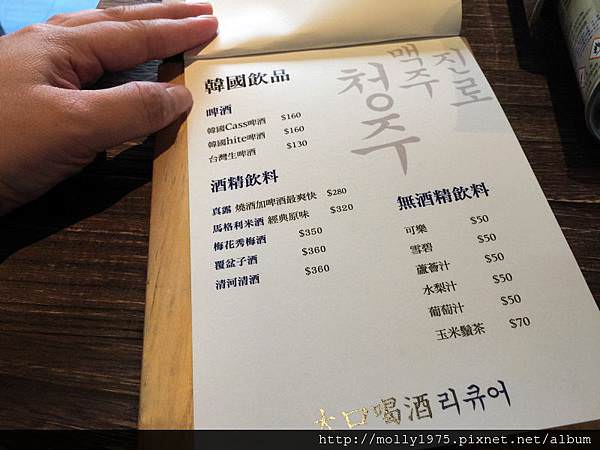 韓國飲品
맥주
진로
청주
啤酒
韓國Cass啤酒 $160
韓國hite啤酒 $160
台灣生啤酒 $130
酒精飲料
真露 燒酒加啤酒最爽快 $280
馬格利米酒 經典原味 $320
梅花秀梅酒 $350
覆盆子酒 $360
清河清酒 $360
無酒精飲料
可樂 $50
雪碧 $50
蘆薈汁 $50
水梨汁 $50
葡萄汁 $50
玉米鬚茶 $70
大口喝酒 리큐어
http://molly1975.pixnet.net/album